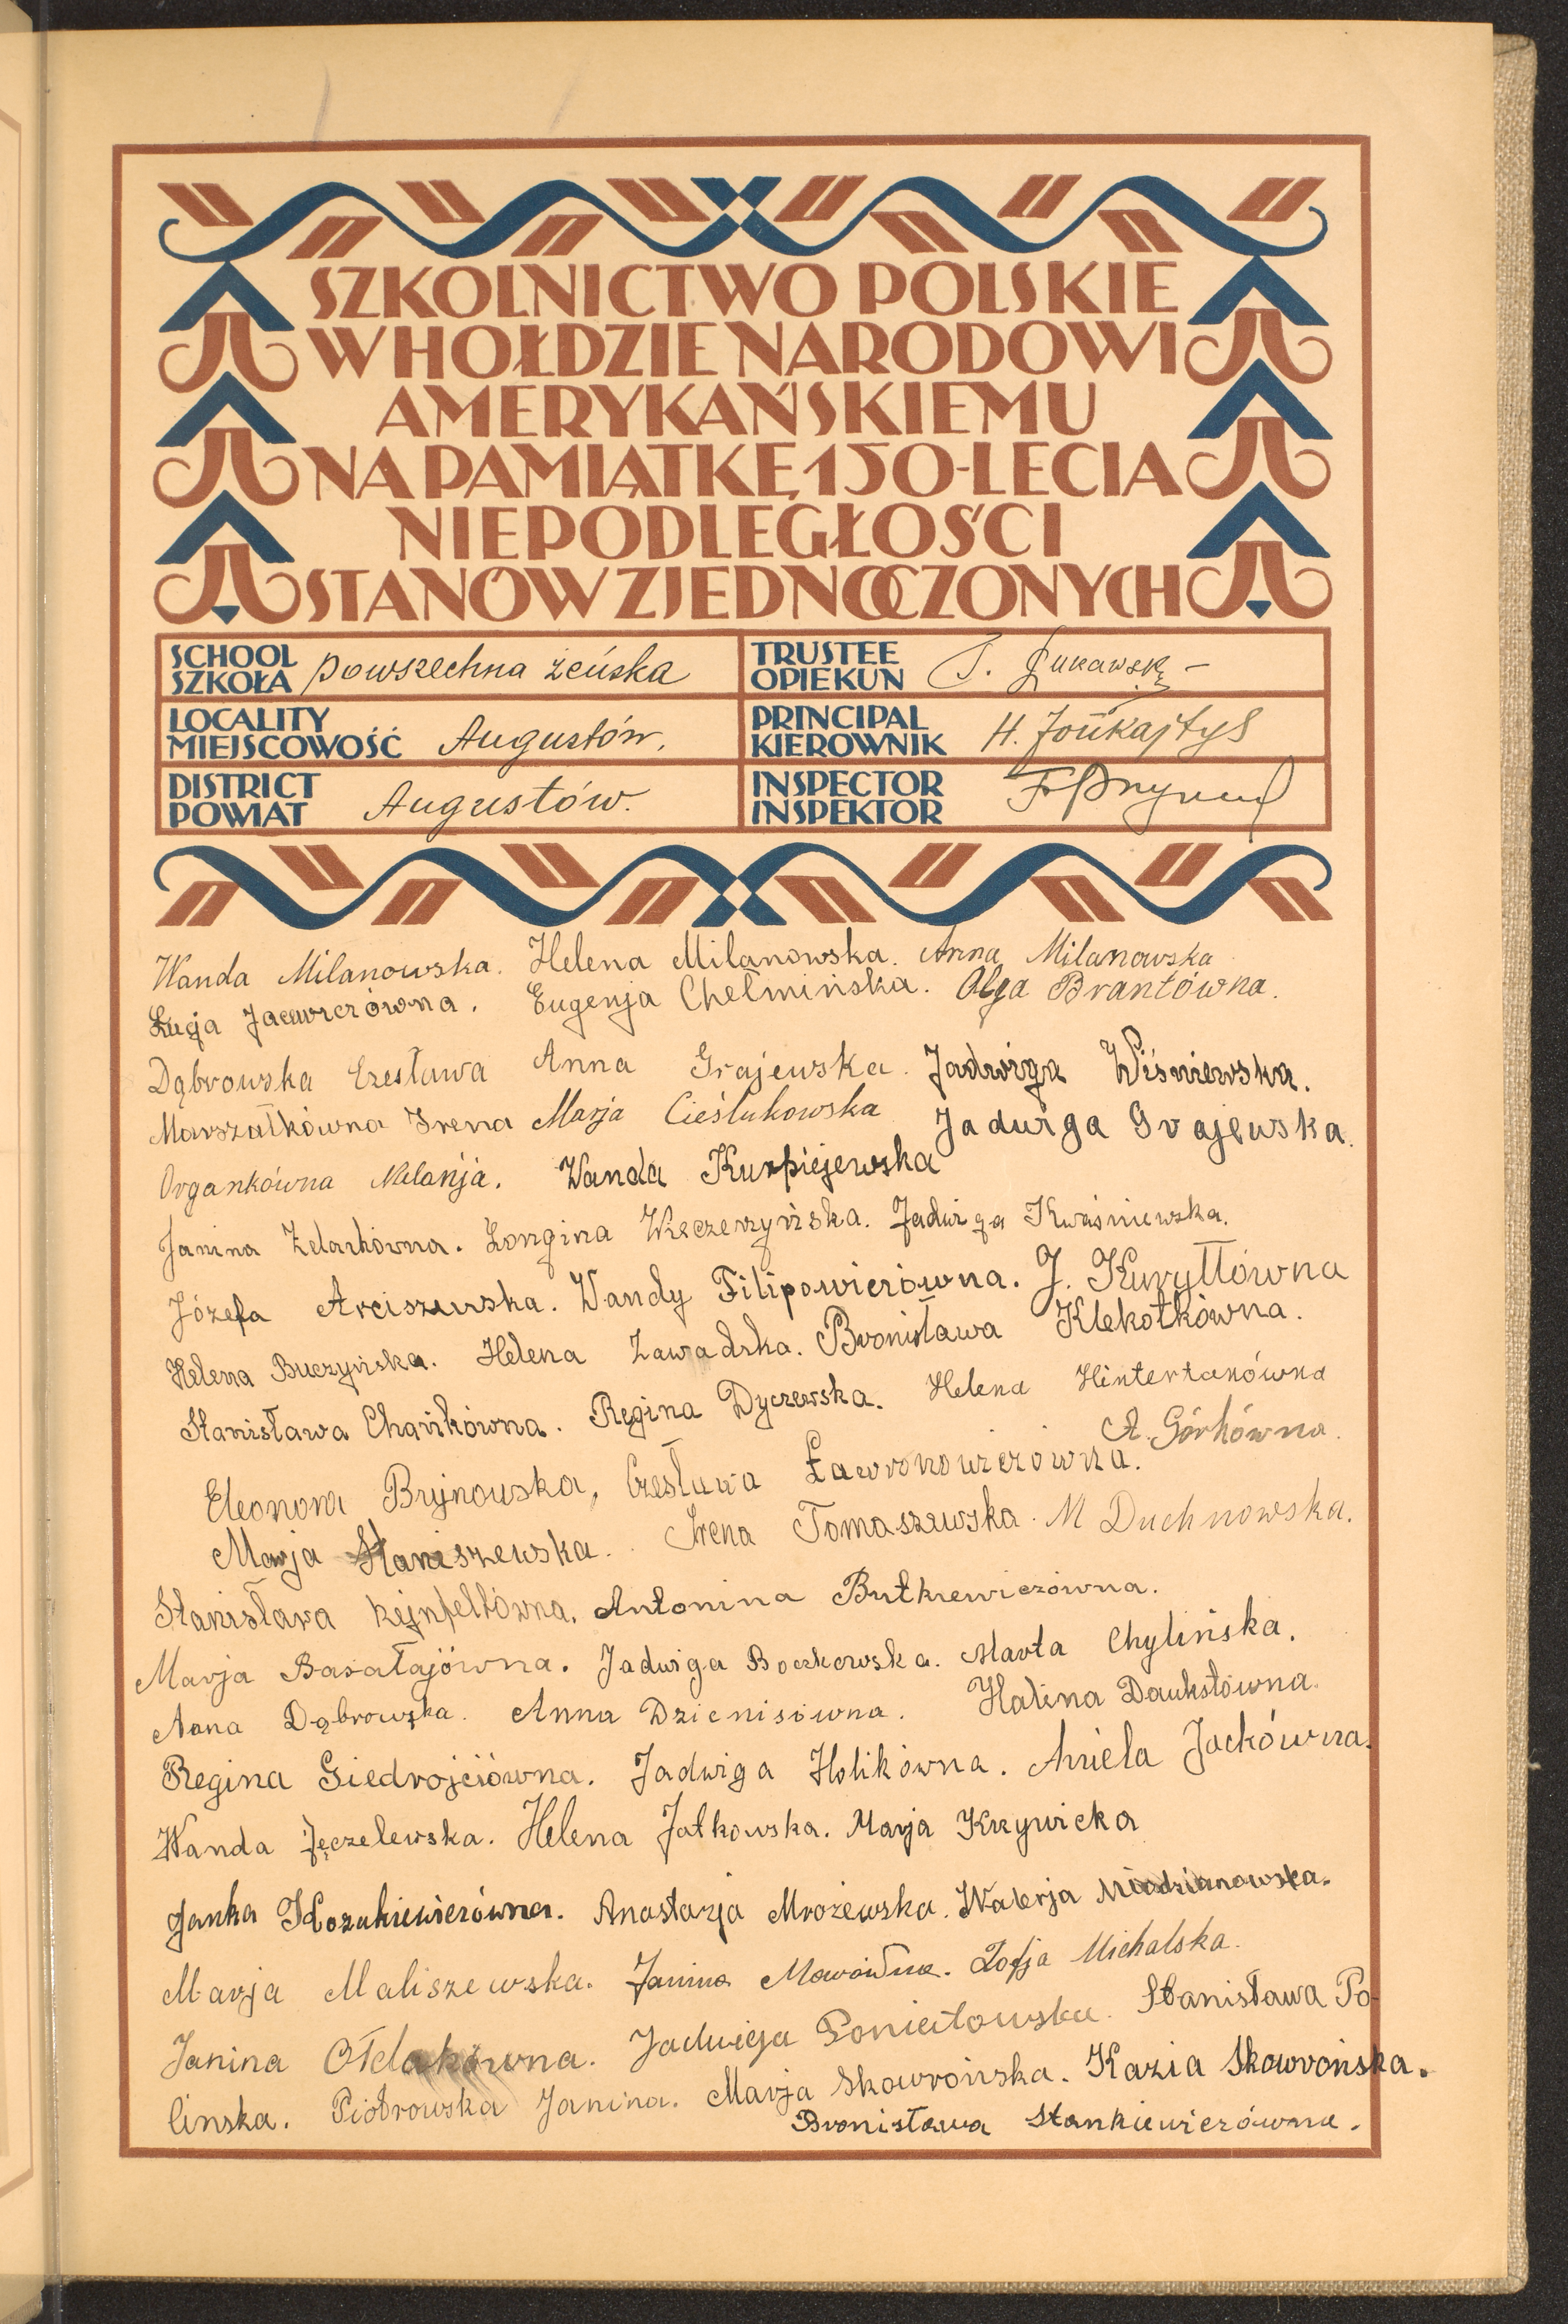 SZKOLNICTWO POLSKIE
W HOŁDZIE NARODOWI
AMERYKAŃSKIEMU
NA PAMIĄTKĘ 150-LECIA
NIEPODLEGŁOŚCI
STANÓW ZJEDNOCZONYCH
SCHOOL SZKOŁA powszechna żeńska
TRUSTEE OPIEKUN
LOCALITY MIEJSCOWOŚĆ Augustów.
PRINCIPAL KIEROWNIK H. Jońkajtys
DISTRICT POWIAT Augustów.
INSPECTOR INSPEKTOR
Wanda Milanowska. Helena Milanowska. Anna Milanowska
Łucja Jacewiczówna. Eugenja Chełmińska. Olga Brantówna.
Dąbrowska Czesława Anna Grajewska. Jadwiga Wiśniewska.
Marszałkówna Irena Marja Cieślukowska Jadwiga Grajewska.
Organkówna Melanja. Wanda Kurpiejewska
Janina Żelazkówna. Longina Wieczerzyńska. Jadwiga Kwaśniewska.
Józefa Arciszewska. Wandy Filipowiczówna. J. Kuryłłówna
Helena Buczyńska. Helena Zawadzka. Bronisława Klekotkówna.
Stanisława Chańkówna. Regina Dyczewska. Helena Hintertanówna
A. Górkówna.
Eleonora Bryjnowska, Czesława Ławronowiczówna.
Marja Staniszewska. Irena Tomaszewska. M Duchnowska.
Stanisława Antonina Butkiewiczówna.
Marja Basałajówna. Jadwiga Boczkowska. Marta Chylińska.
Anna Dąbrowska. Anna Dzienisówna. Halina Daukstówna.
Regina Giedrojciówna. Jadwiga Holikówna. Aniela Jackówna.
Wanda Jęczelewska. Helena Jatkowska. Marja Krzywicka
Janka Kozakiewiczówna. Anastazja Mrożewska. Walerja Niedzianowska.
Marja Maliszewska. Janina Zofja Michalska.
Janina Ołdakówna. Jadwiga Poniatowska. Stanisława Po-
linska. Piotrowska Janina. Marja Skowrońska. Kazia Skowrońska.
Bronisława Stankiewiczówna.